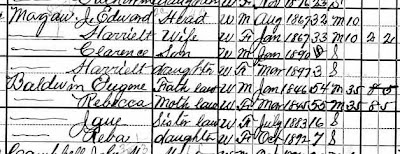 Daughter W F Nov 1876 23 S
Morgan J. Edward Head W M Aug 1867 32 M 10
Harriett Wife W F Jan 1867 33 M 10 2 2
Clarence Son W M Jan 1890 S
Harriett daughter W F Mar 1897 3 S
Baldwin Eugene Fath law W M Jan 1846 54 M 35 8 5
Rebecca Moth law W F Mar 1845 55 M 35 8 5
Jane Sister law W F July 1883 16 S
Reba daughter W F Oct 1892 7 S